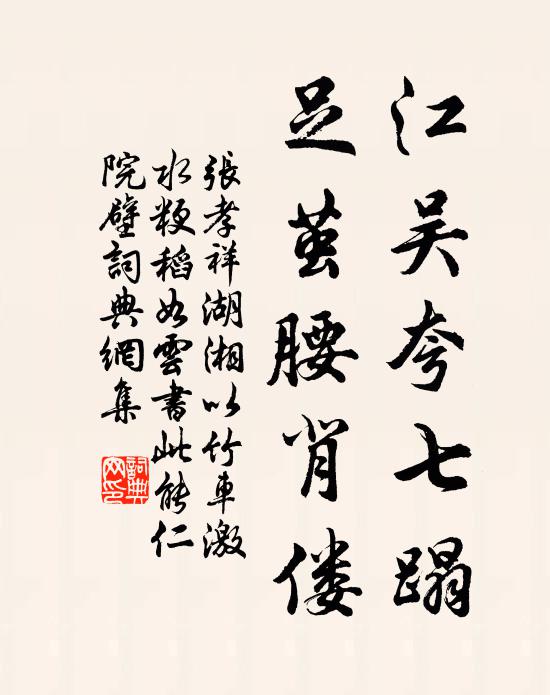 江吴夸七蹋
足茧腰背偻
張孝祥湖湘以竹車激
水粳稻如雲書此能仁
院壁詞典網集
詞典网印